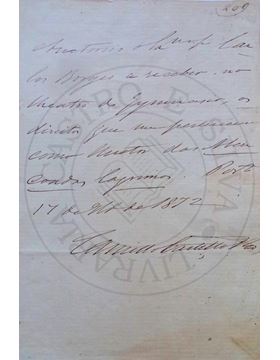 209
Auctoriso o Ill.mo Sr. Car
los Borges a receber, no
theatro do Gymnasio, os
direitos que me pertencem
como Auctor das Aben
çoadas lagrimas. Porto
17 de 1872
Camillo Castello Branco
LIVRARIA